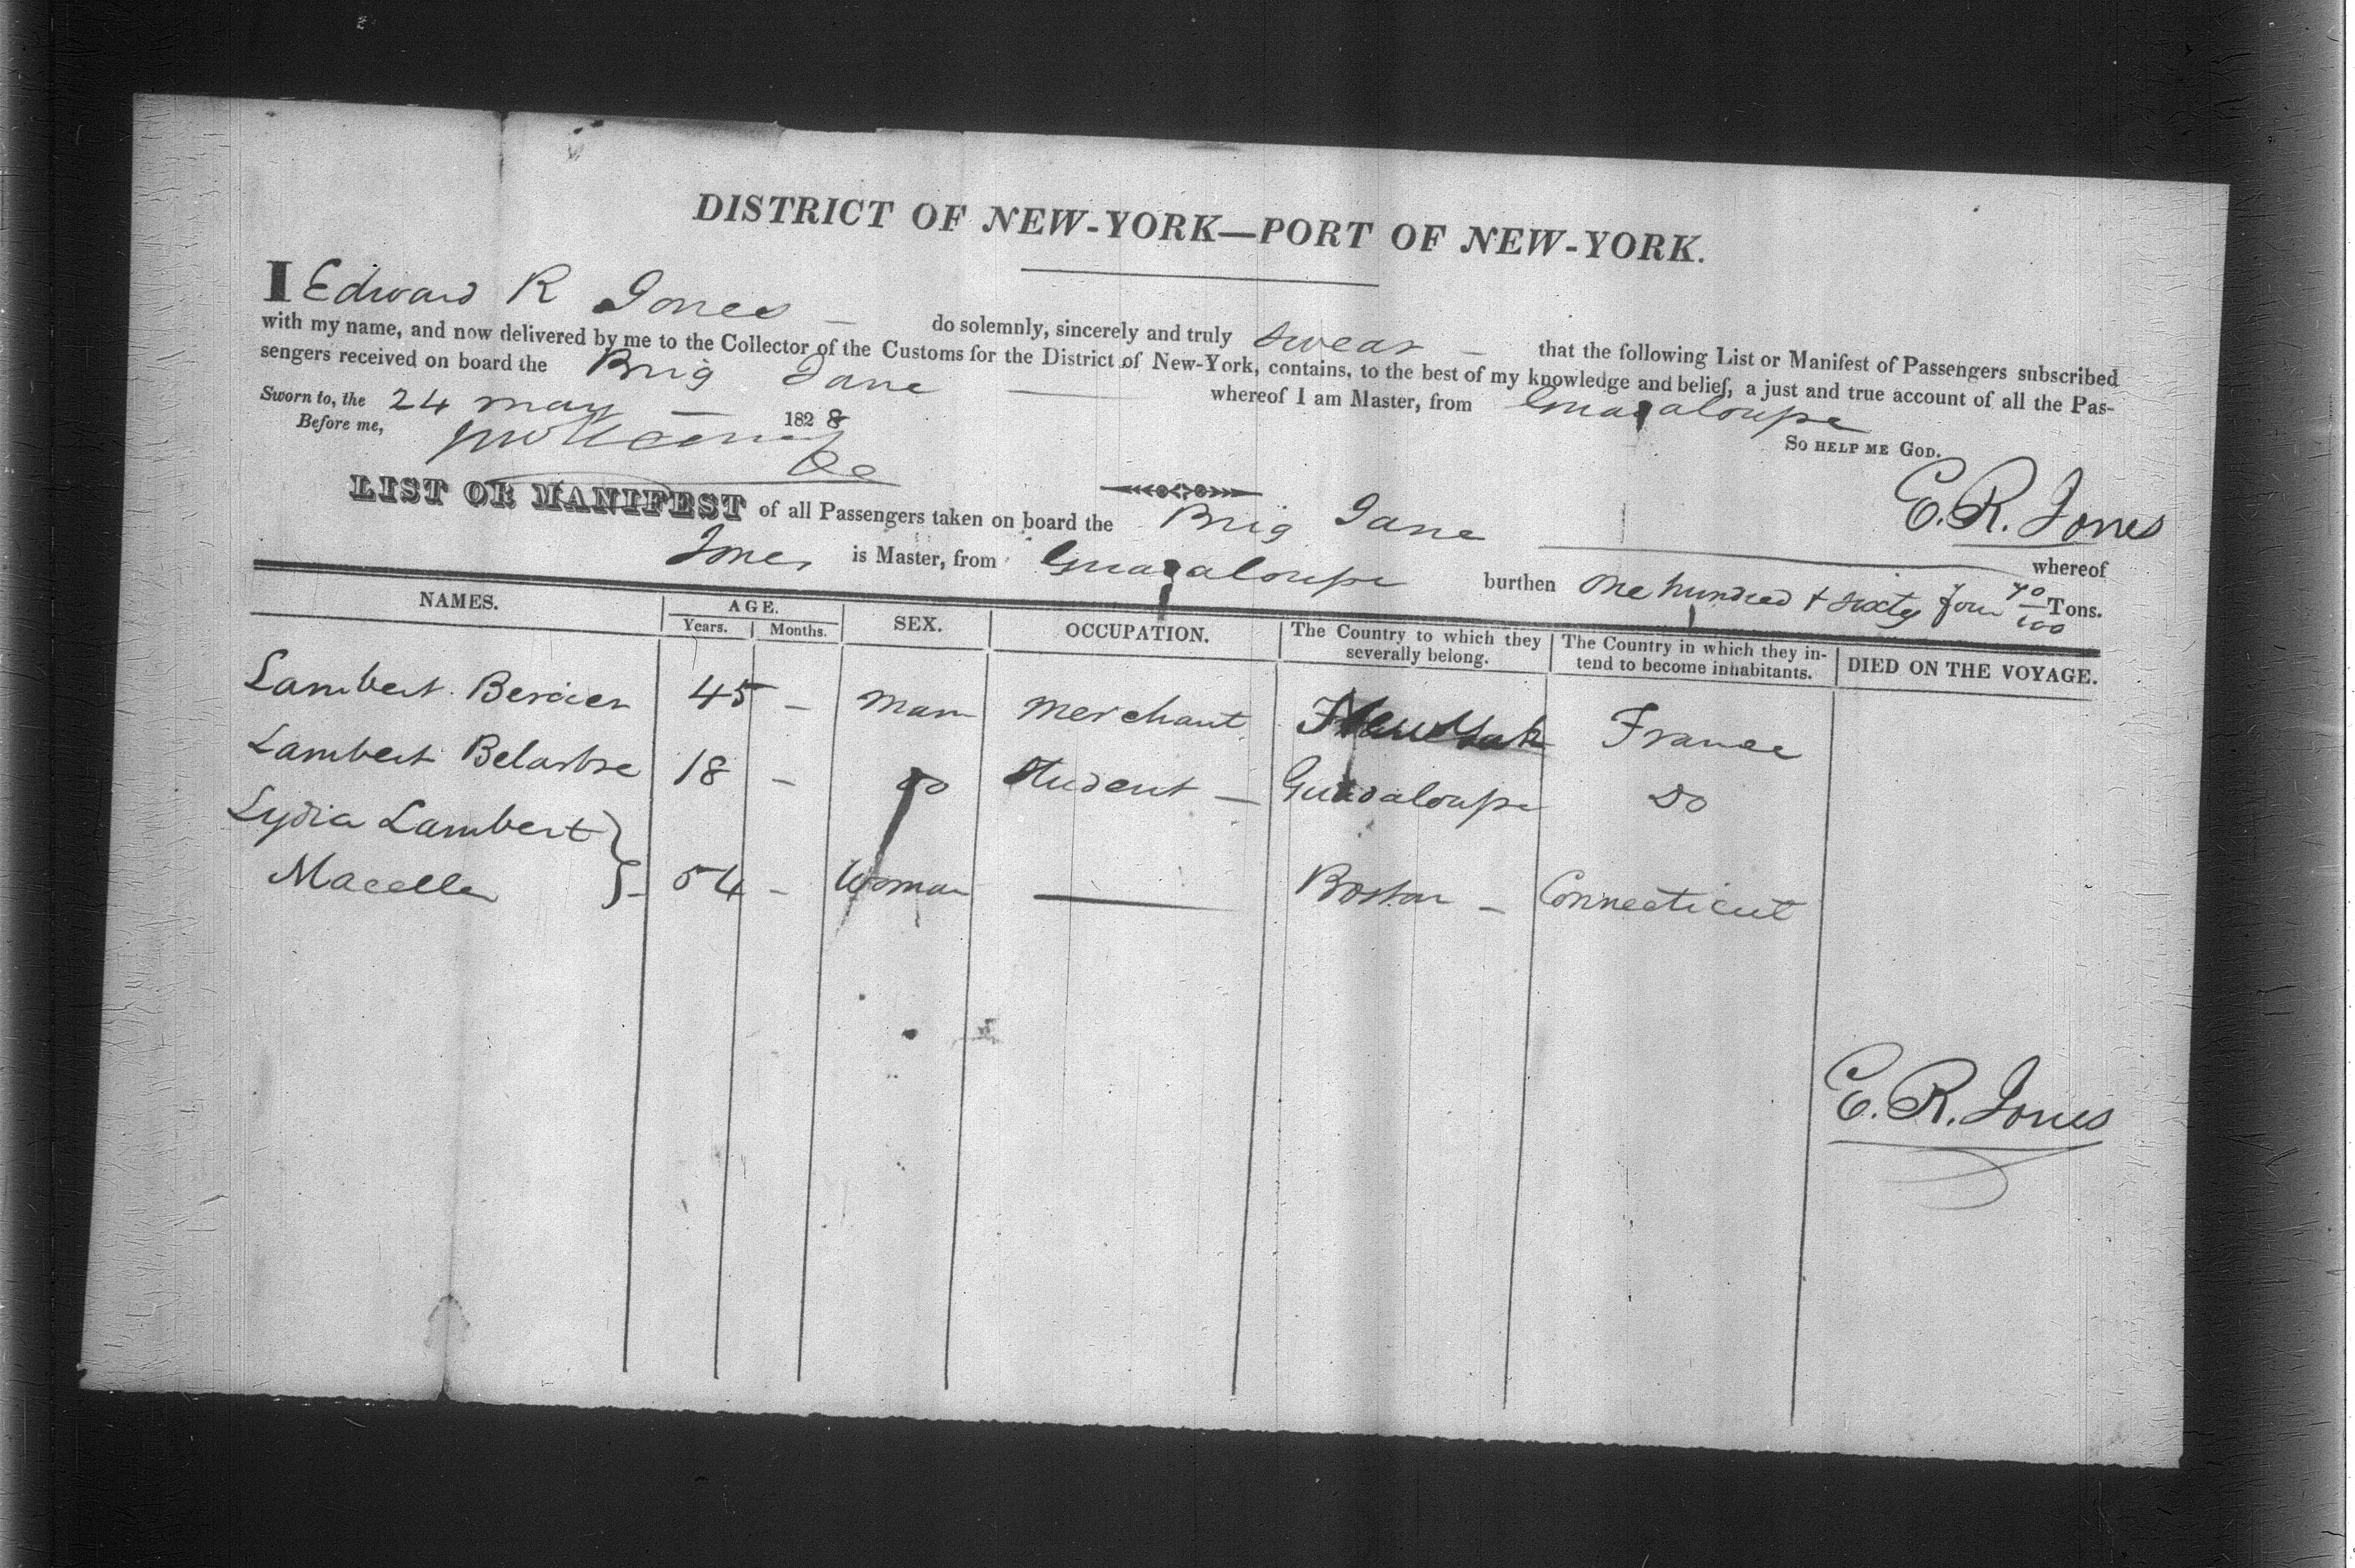 DISTRICT OF NEW-YORK—PORT OF NEW-YORK.
I Edward R Jones — do solemnly, sincerely and truly swear — that the following List or Manifest of Passengers subscribed
with my name, and now delivered by me to the Collector of the Customs for the District of New-York, contains, to the best of my knowledge and belief, a just and true account of all the Pas-
sengers received on board the Brig Jane — whereof I am Master, from Guadaloupe
Sworn to, the 24 may — 1828 So HELP ME GOD.
Before me,
E. R. Jones
LIST OR MANIFEST of all Passengers taken on board the Brig Jane — whereof
Jones is Master, from Guadaloupe burthen One hundred + sixty four 70/100 Tons.
NAMES. AGE. Years. Months. SEX. OCCUPATION. The Country to which they severally belong. The Country in which they in-tend to become inhabitants. DIED ON THE VOYAGE.
Lambert Bercier 45 — Man Merchant France
Lambert Belarbre 18 — Do Student — Guadaloupe Do
Lydia Lambert }
Macella } — 54 — Woman — Boston — Connecticut
E. R. Jones